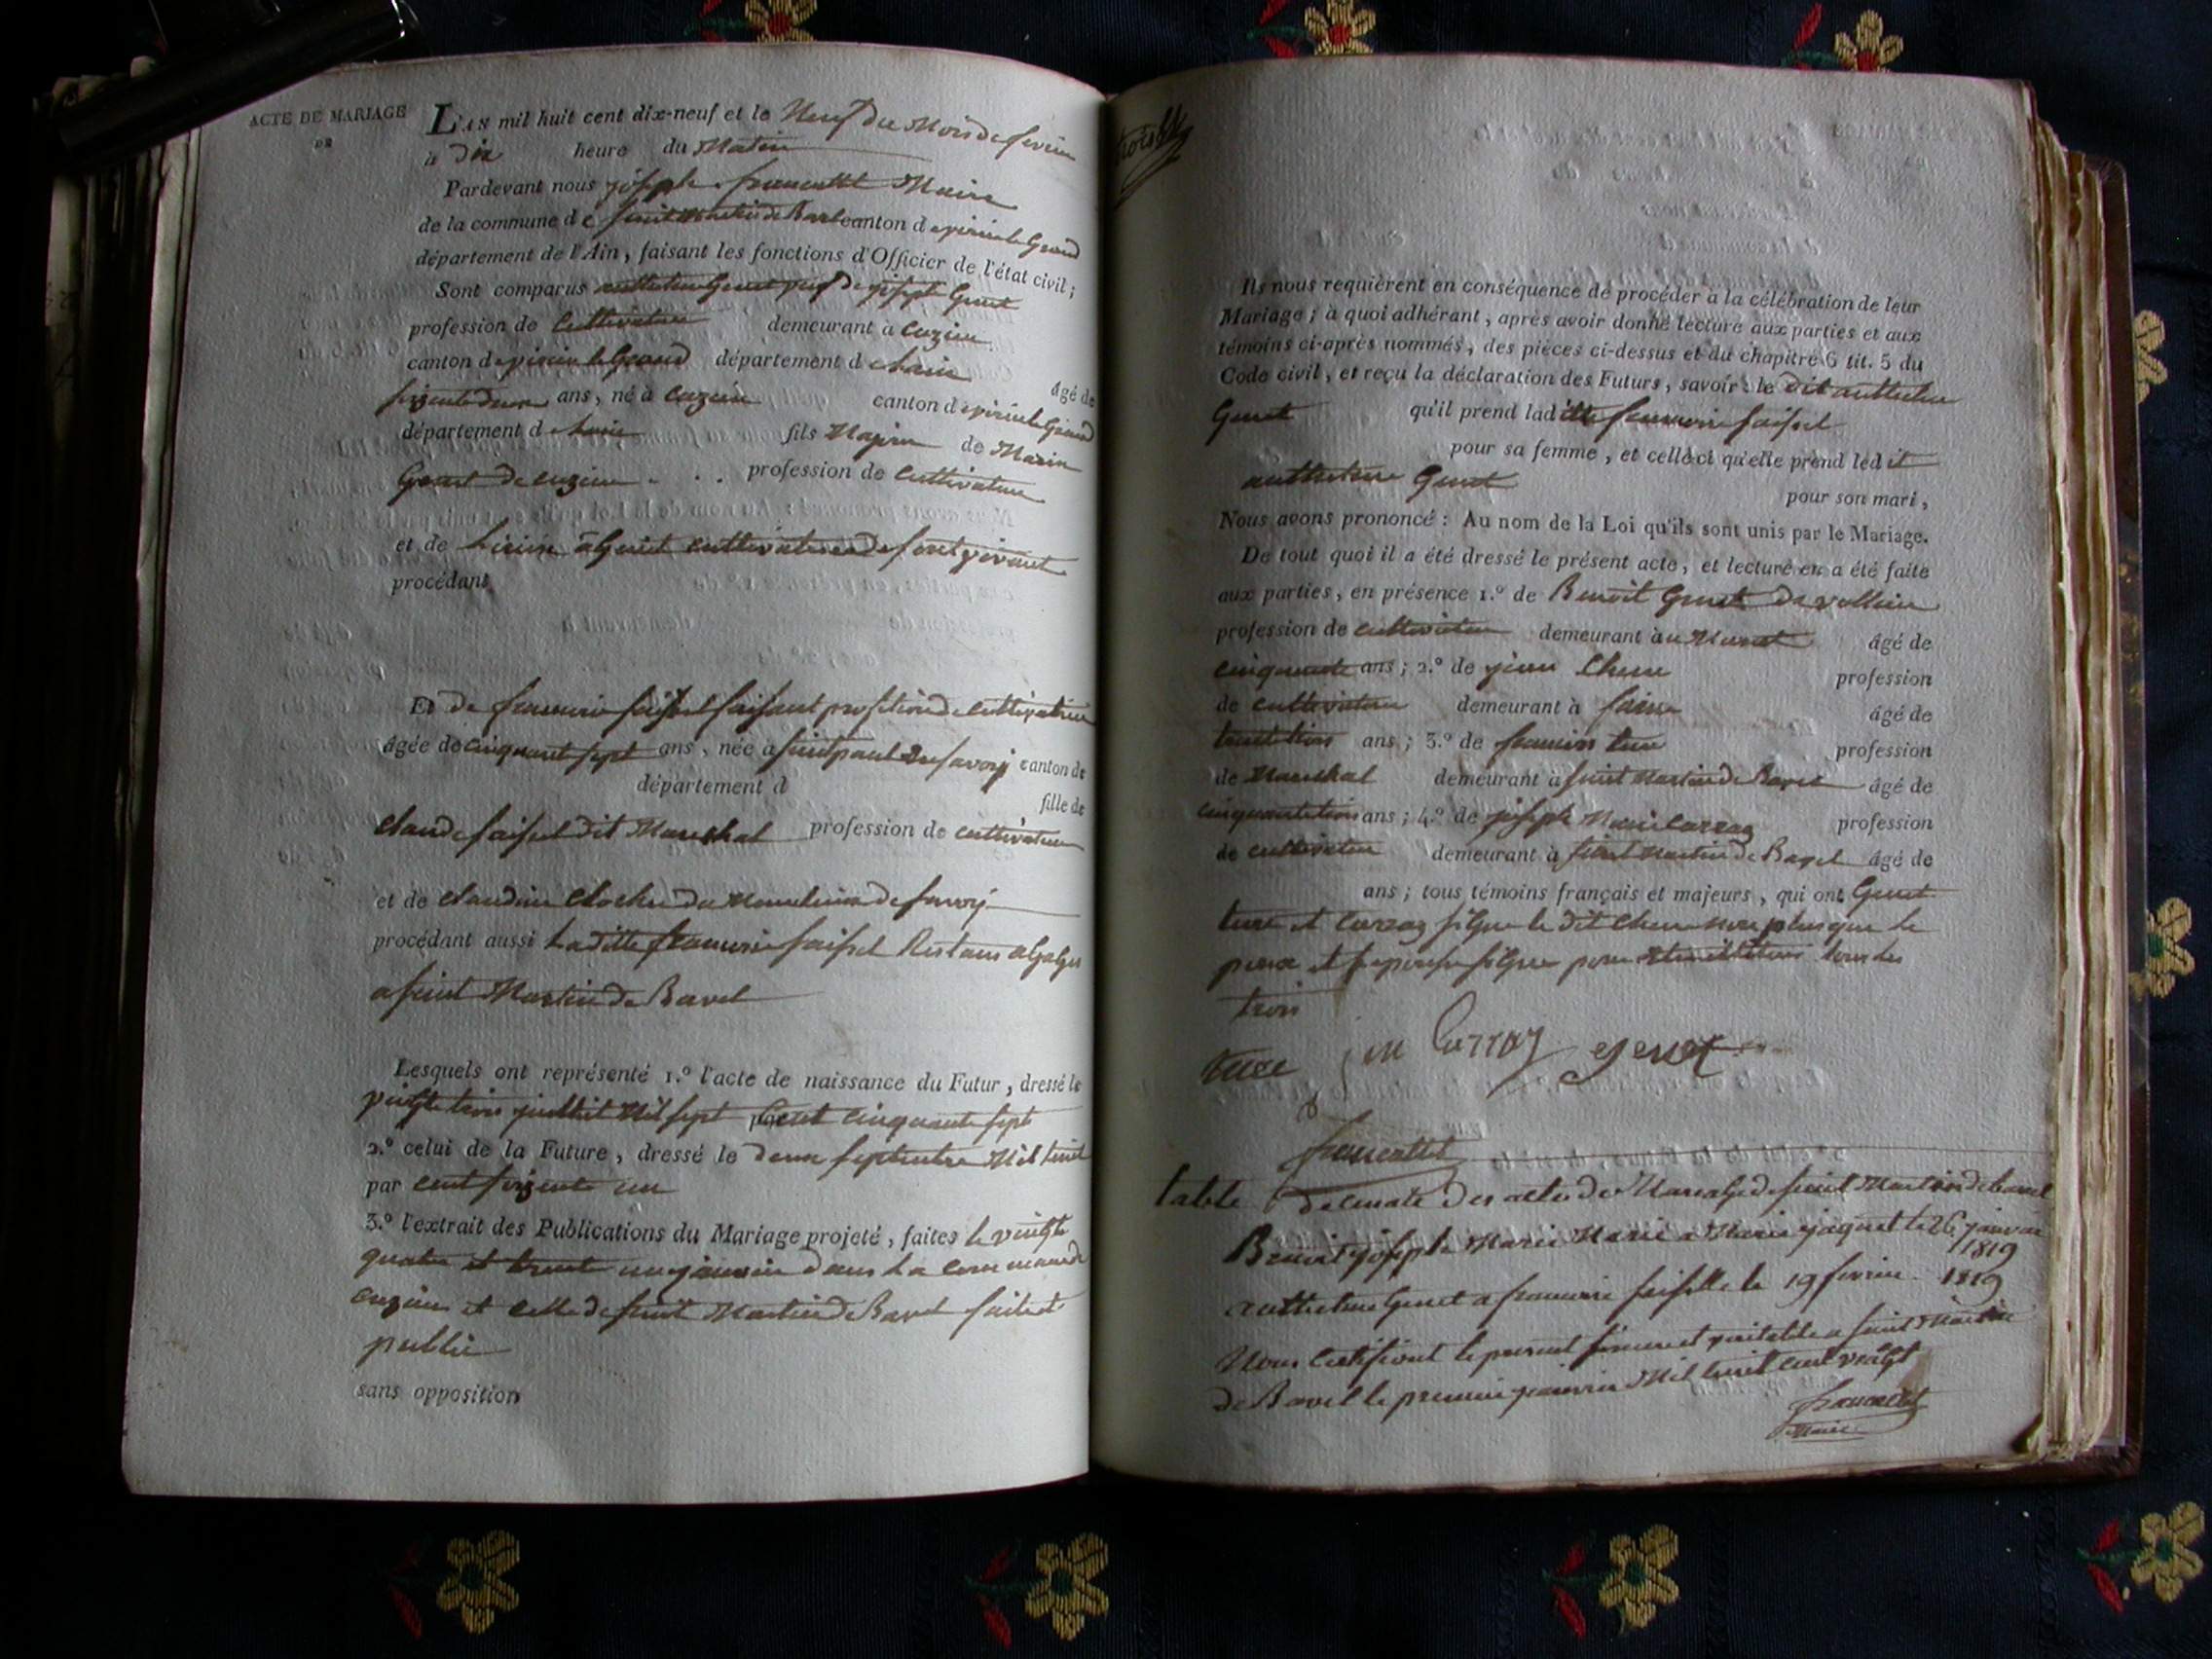 ACTE DE MARIAGE
DE
L'AN mil huit cent dix-neuf et le Neuf du Mois de fevrier
à Dix heure du Matin
Pardevant nous joseph francallet Maire
de la commune de saint Martin de Bavel canton de virieu le Grand
département de l'Ain, faisant les fonctions d'Officier de l'état civil ;
Sont comparus anthelme Genet veuf de joseph Genet
profession de Cultivateur demeurant à Cuzieu
canton de virieu le Grand département de Lain âgé de
soizante deux ans, né à Cuzieu canton de virieu le Grand
département de Lain fils Majeur de Marin
Genet de Cuzieu profession de Cultivateur
et de Cultivatrice de font vivant
procédant
Et de francoise faifsel faifsant profétion de cultivatrice
âgée de cinquant sept ans, née a saint paul En savoy canton de
département d fille de
Claude faifsel dit Mareshal profession de cultivateur
et de Claudine de savoy
procédant aussi La ditte francoise faifsel Restant
a saint Martin de Bavel
Lesquels ont représenté 1.º l'acte de naissance du Futur, dressé le
vingte trois juillet Mil sept Cent cinquante sept
2.º celui de la Future, dressé le deux septembre Mil huit
par cent soizente un
3.º l'extrait des Publications du Mariage projeté, faites le vingte
quatre et trente un janvier dans La commune de
cuzieu et celle de saint Martin de Bavel faite et
publié
sans opposition
Ils nous requièrent en conséquence de procéder à la célébration de leur
Mariage ; à quoi adhérant, après avoir donné lecture aux parties et aux
témoins ci-après nommés, des pièces ci-dessus et du chapitre 6 tit. 5 du
Code civil, et reçu la déclaration des Futurs, savoir : le dit anthelme
Genet qu'il prend laditte francoise faifsel
pour sa femme, et celle-ci qu'elle prend ledit
anthelme Genet pour son mari,
Nous avons prononcé : Au nom de la Loi qu'ils sont unis par le Mariage.
De tout quoi il a été dressé le présent acte, et lecture en a été faite
aux parties, en présence 1.º de Benoit Genet de vollien
profession de cultivateur demeurant au Muret âgé de
cinquante ans ; 2.º de jean Chene profession
de cultivateur demeurant à âgé de
trente trois ans ; 3.º de francois ture profession
de Mareshal demeurant à saint Martin de Bavel âgé de
cinquante trois ans ; 4.º de joseph Marie Carraz profession
de cultivateur demeurant à saint Martin de Bavel âgé de
ans ; tous témoins français et majeurs, qui ont Genet
ture et Carraz signe le dit Chene non plus que le
poux et signer pour tous les
trois
ture j m Carraz genet
francallet
table decenale des actes de Mariage de saint Martin de bavel
Benoit joseph Marie Marié a Marie jaquet le 26 janvier
1819
anthelme Genet a francoise faifselle le 19 fevrier 1819
Nous Certifiont le present sincere et veritable a saint Martin
de Bavel le premier janvier Mil huit cent vingt
francallet
Maire